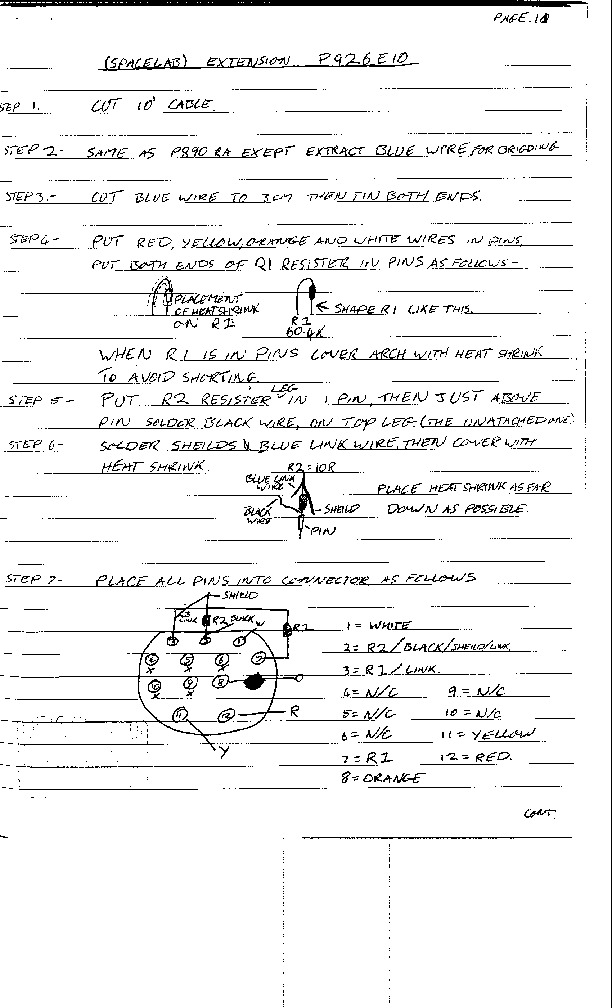 PAGE.
(SPACELAB) EXTENSION P926E10
STEP 1. CUT 10' CABLE.
STEP 2- SAME AS P890 RA EXEPT EXTRACT BLUE WIRE, FOR BRIGDING
STEP 3.- CUT BLUE WIRE TO 3CM THEN TIN BOTH ENDS.
STEP 4- PUT RED, YELLOW, ORANGE AND WHITE WIRES IN PINS,
PUT BOTH ENDS OF R1 RESISTER IN PINS AS FOLLOWS-
PLACEMENT
OF HEATSHRINK
ON R1.
R1
60.4K
← SHAPE R1 LIKE THIS.
WHEN R1 IS IN PINS COVER ARCH WITH HEAT SHRINK
TO AVOID SHORTING.
STEP 5- PUT R2 RESISTER LEG IN 1 PIN, THEN JUST ABOVE
PIN SOLDER BLACK WIRE, ON TOP LEG. (THE UNATACHED ONE)
STEP 6- SOLDER SHEILDS & BLUE LINK WIRE, THEN COVER WITH
HEAT SHRINK.
R2=10R
BLUE LINK
WIRE
BLACK
WIRE
SHEILD
PIN
PLACE HEATSHRINK AS FAR
DOWN AS POSSIBLE.
STEP 7- PLACE ALL PINS INTO CONNECTOR AS FOLLOWS
SHIELD
LINK
R2
BLACK
W
R1
3
2
1
4
5
6
7
10
9
8
O
11
12
R
Y
X
X
X
X
X
1 = WHITE
2 = R2/BLACK/SHEILD/LINK
3 = R1/LINK.
4 = N/C 9 = N/C
5 = N/C 10 = N/C
6 = N/C 11 = YELLOW
7 = R1 12 = RED.
8 = ORANGE
CONT